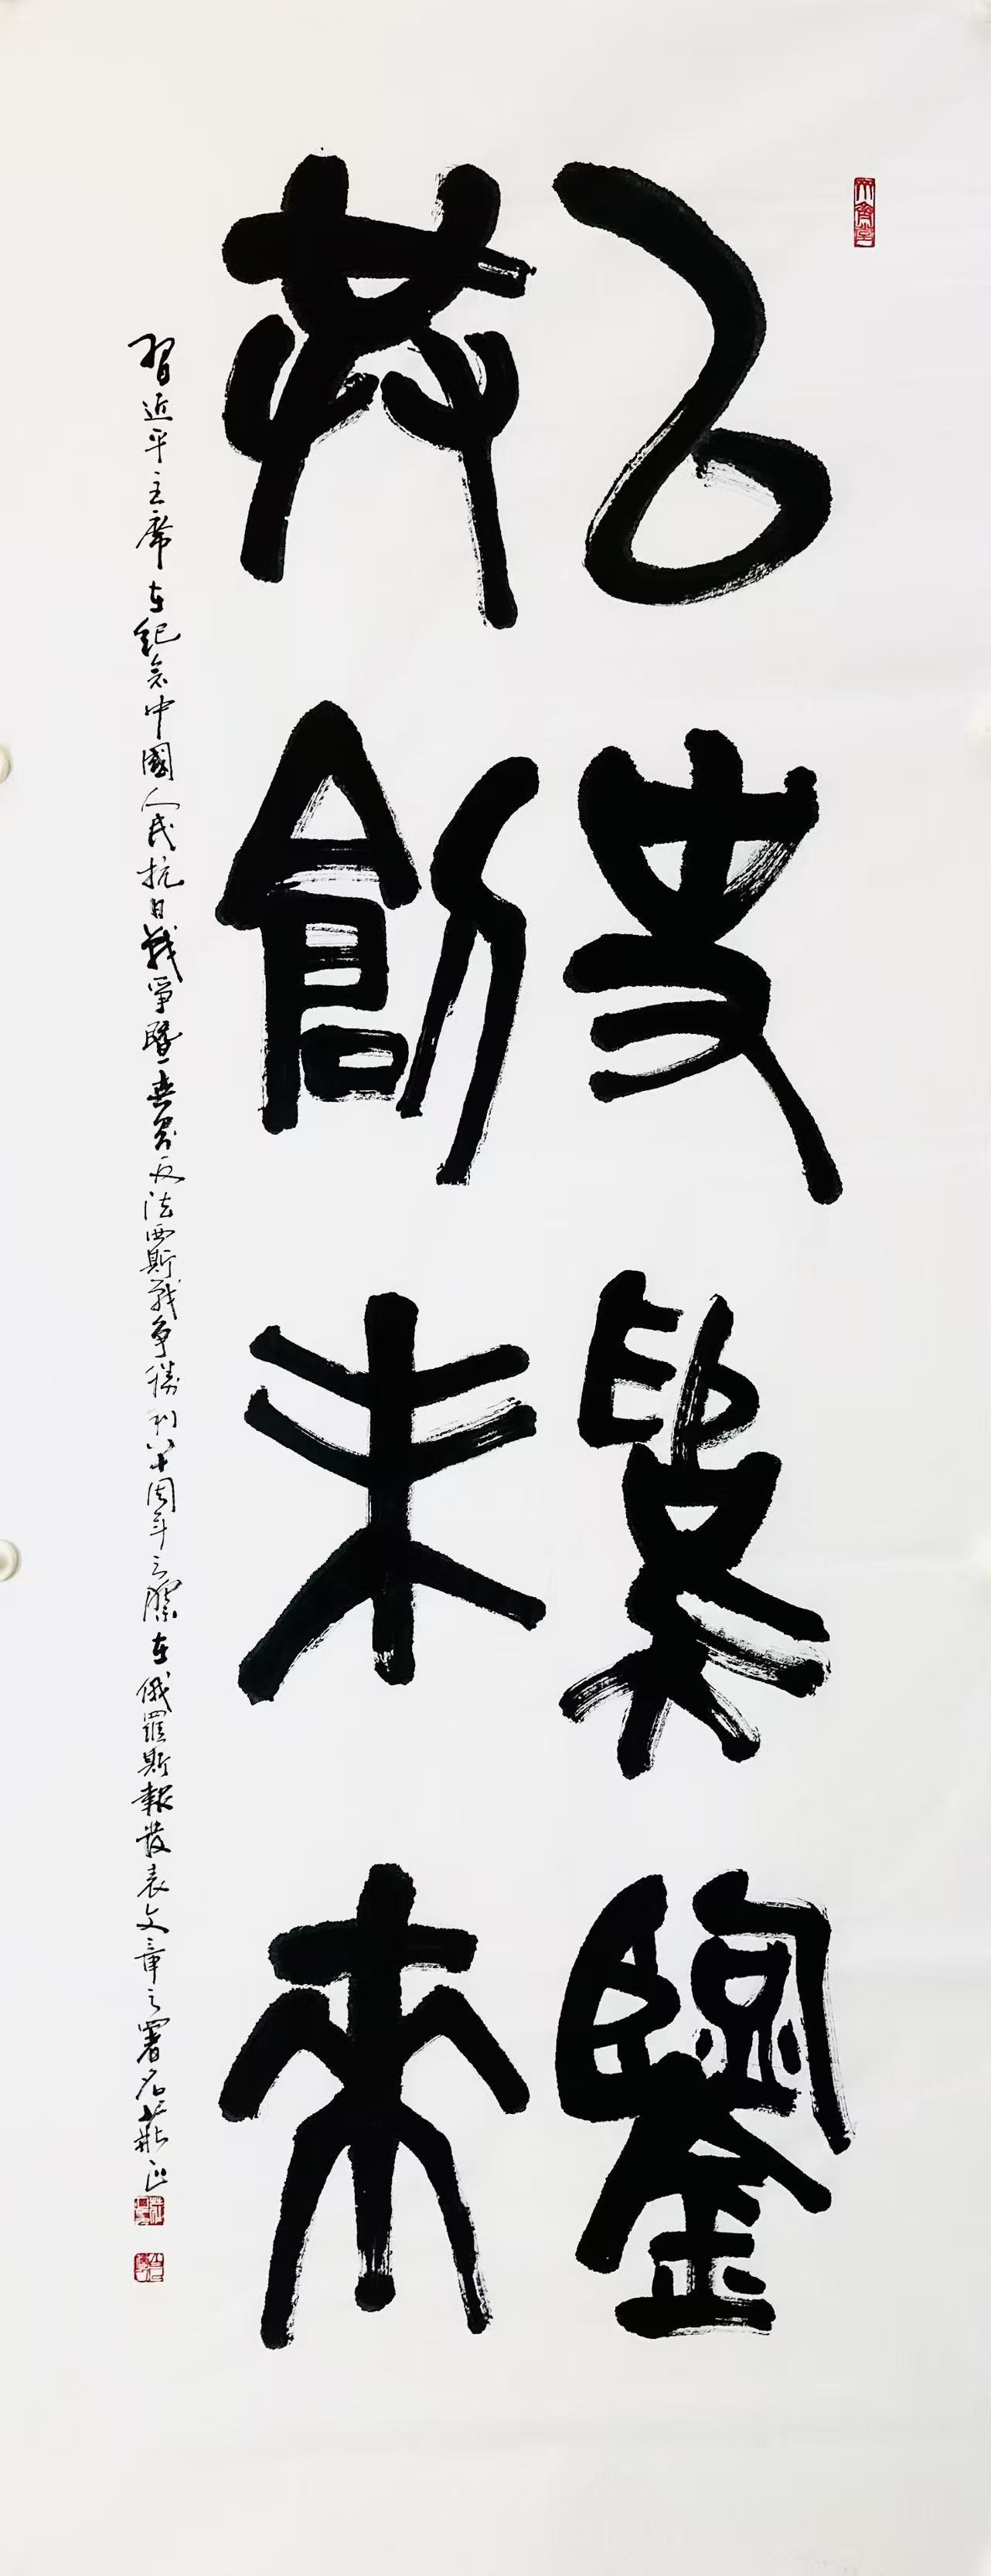 以史爲鑒
共創未來
習近平主席在紀念中國人民抗日戰爭暨世界反法西斯戰爭勝利八十周年之際在俄羅斯報發表文章之署名莊正